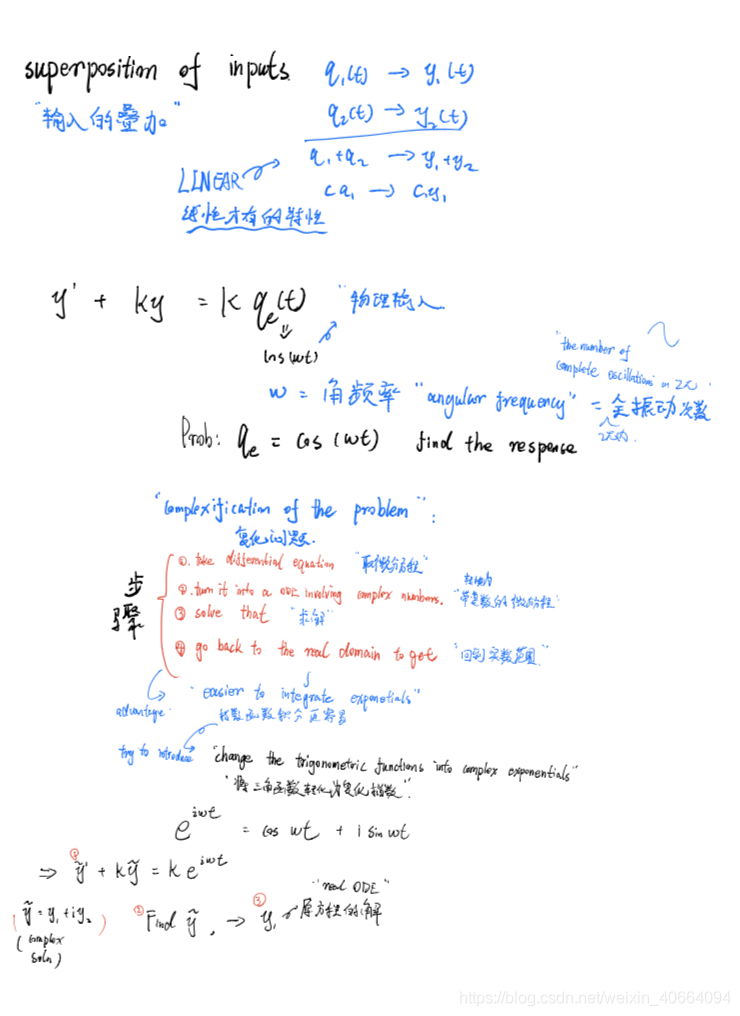 superposition of inputs. q₁(t) → y₁(t)
"输入的叠加" q₂(t) → y₂(t)
q₁+q₂ → y₁+y₂
LINEAR
cq₁ → cy₁
线性才有的特性
y' + ky = k qₑ(t) "物理输入
cos(wt)
"the number of
complete oscillations in 2π"
w = 角频率 "angular frequency" = 全振动次数
2π内.
Prob: qₑ = cos(wt) find the response
"complexification of the problem":
复化问题.
步骤
①. take differential equation "取微分方程"
②. turn it into a ODE involving complex numbers. "带复数的微分方程"
③ solve that "求解"
④ go back to the real domain to get "回到实数范围"
advantage: "easier to integrate exponentials"
指数函数积分更容易
try to introduce "change the trigonometric functions into complex exponentials"
"将三角函数转化为复化指数".
e^{iwt} = cos wt + i sin wt
⇒ ① ỹ' + kỹ = k e^{iwt}
"real ODE"
ỹ = y₁ + iy₂ ② Find ỹ, → ③ y₁ 原方程的解
(complex
soln)
https://blog.csdn.net/weixin_40664094